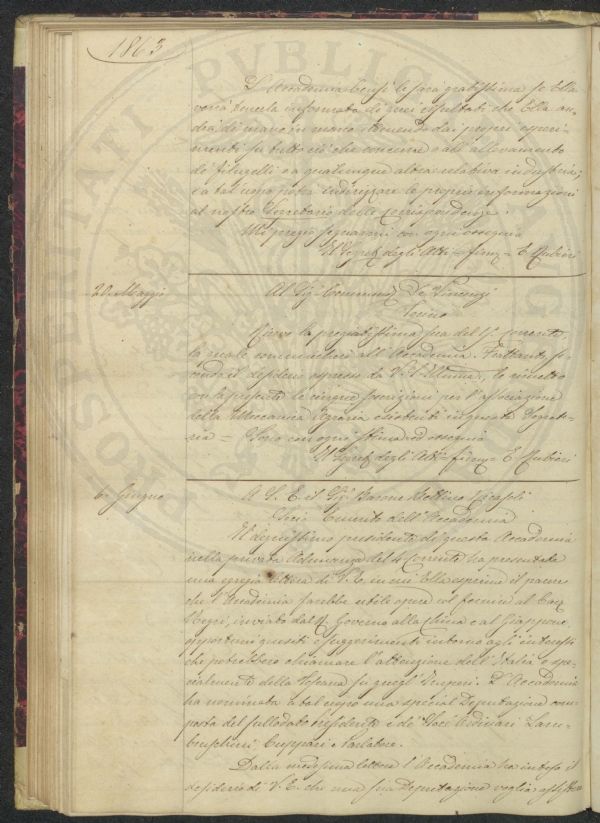 1863
L'Accademia bensì le sarà gratissima se Ella
vorrà tenerla informata di quei resultati che Ella an-
drà di mano in mano ottenendo dai propri esperi-
menti su tutto ciò che concerne all'allevamento
de' filugelli o a qualunque altra relativa industria;
e a tal uopo potrà indirizzare le proprie informazioni
al nostro Segretario delle corrispondenze.
Mi pregio segnarmi con ogni ossequio
Il Segret. degli Atti = firm.= E. Rubieri
20 Maggio
Al Sig. Commend. De Vincenzi
Torino
Ricevo la pregiatissima sua del corrente,
la quale comunicherò all'Accademia. Frattanto, se-
condo il desiderio espresso da V. S. Illma, le rimetto
con la presente le cinque iscrizioni per l'associazione
della Meccanica Agraria esistenti in questa Segrete-
ria = Sono con ogni stima ed ossequio
Il Segret. degli Atti = firm.= E. Rubieri
6. Giugno
A S. E. il Sig. Barone Bettino Ricasoli
Socio Emerito dell'Accademia
Il degnissimo presidente di questa Accademia
nella privata Adunanza del 4 corrente ha presentata
una egregia lettera di V. E. in cui Ella esprime il parere
che l'Accademia farebbe utile opera col fornire al Cav.
Negri, inviato dal R. Governo alla China e al Giappone,
opportuni quesiti e suggerimenti intorno agli interessi
che potrebbero chiamare l'attenzione dell'Italia e spe-
cialmente della Toscana su quegl'Imperi. L'Accademia
ha nominata a tal uopo una special Deputazione com-
posta del sullodato presidente e de' Soci Ordinari Lam-
bruschini, Cuppari e Parlatore.
Dalla medesima lettera l'Accademia ha inteso il
desiderio di V. E. che una sua Deputazione voglia assistere